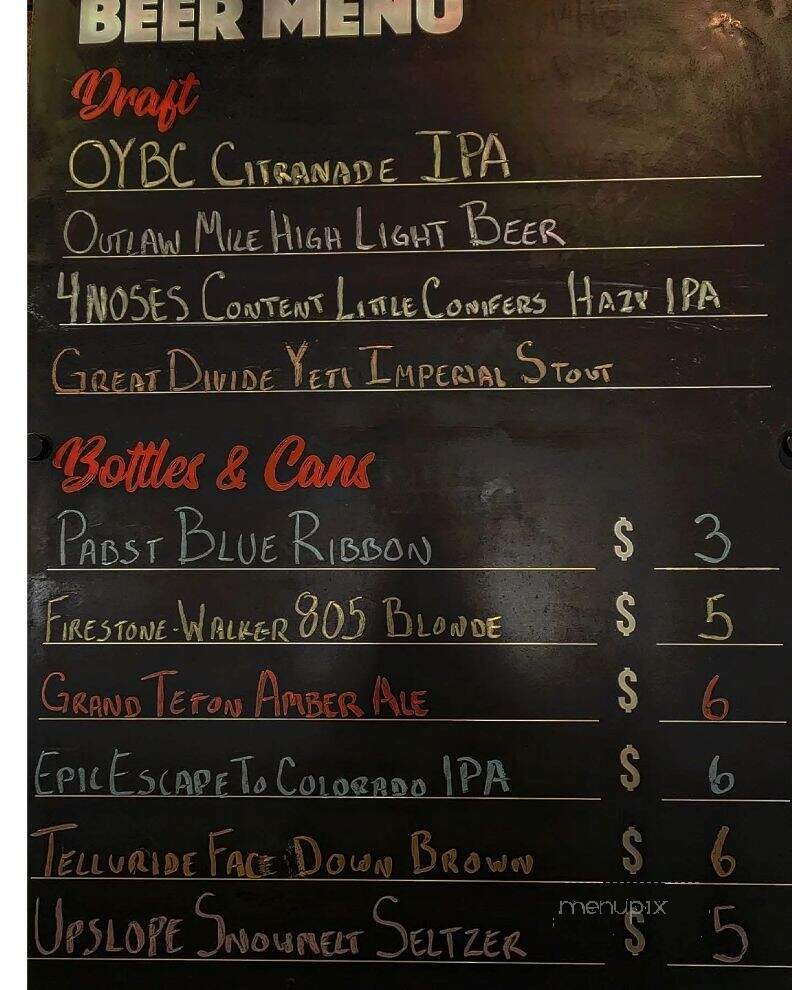 BEER MENU
Draft
OYBC CITRANADE IPA
OUTLAW MILE HIGH LIGHT BEER
4 NOSES CONTENT LITTLE CONIFERS HAZY IPA
GREAT DIVIDE YETI IMPERIAL STOUT
Bottles & Cans
PABST BLUE RIBBON $ 3
FIRESTONE-WALKER 805 BLONDE $ 5
GRAND TETON AMBER ALE $ 6
EPIC ESCAPE TO COLORADO IPA $ 6
TELLURIDE FACE DOWN BROWN $ 6
menupix
UPSLOPE SNOWMELT SELTZER $ 5